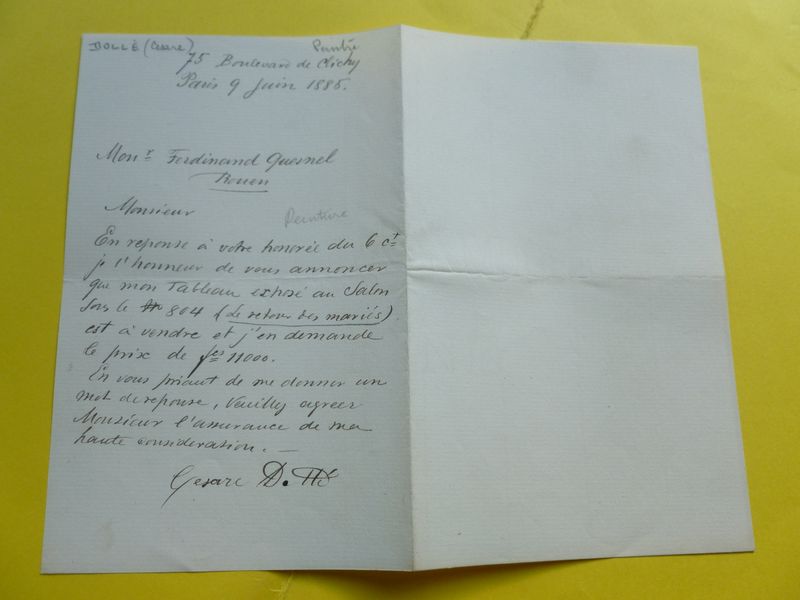 DOLLÉ (Cesare) Peintre
75 Boulevard de Clichy
Paris 9 Juin 1885.
Monr. Ferdinand Quesnel
Rouen
Monsieur
Peinture
En reponse à votre honorée du 6 ct
j l'honneur de vous annoncer
que mon Tableau exposé au Salon
sous le No 804 (Le retour des mariés)
est à vendre et j'en demande
le prix de fcs 11000.
En vous priant de me donner un
mot de reponse, Veuilly agreer
Monsieur l'assurance de ma
haute considerasion. —
Cesare